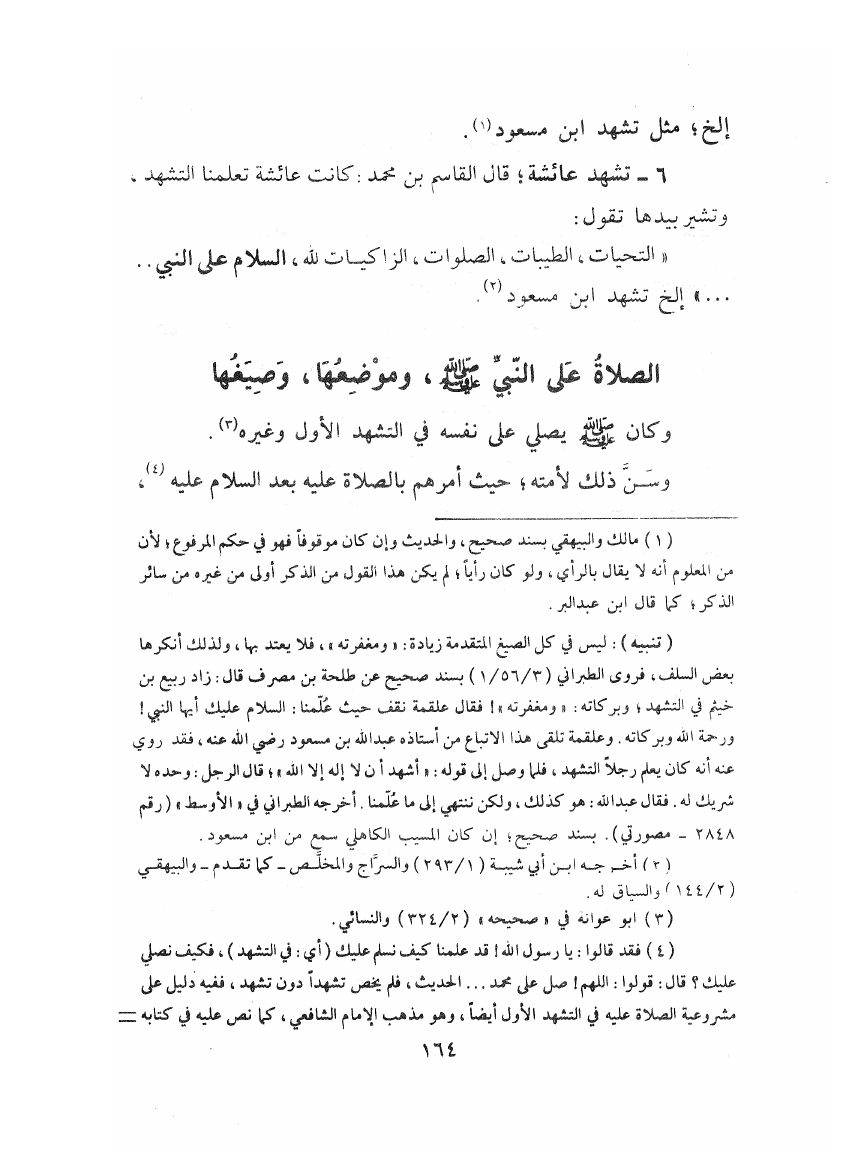 إلخ؛ مثل تشهد ابن مسعود(١).
٦ - تشهد عائشة؛ قال القاسم بن محمد: كانت عائشة تعلمنا التشهد،
وتشير بيدها تقول:
« التحيات، الطيبات، الصلوات، الزاكيات لله، السلام على النبي..
...» إلخ تشهد ابن مسعود(٢).
الصلاةُ عَلى النّبيِّ ﷺ، وموْضِعُهَا، وَصِيَغُها
وكان ﷺ يصلي على نفسه في التشهد الأول وغيره(٣).
وسَنَّ ذلك لأمته؛ حيث أمرهم بالصلاة عليه بعد السلام عليه(٤)،
(١) مالك والبيهقي بسند صحيح، والحديث وإن كان موقوفاً فهو في حكم المرفوع؛ لأن
من المعلوم أنه لا يقال بالرأي، ولو كان رأياً؛ لم يكن هذا القول من الذكر أولى من غيره من سائر
الذكر؛ كما قال ابن عبدالبر.
(تنبيه): ليس في كل الصيغ المتقدمة زيادة: «ومغفرته»، فلا يعتد بها، ولذلك أنكرها
بعض السلف، فروى الطبراني (١/٥٦/٣) بسند صحيح عن طلحة بن مصرف قال: زاد ربيع بن
خيثم في التشهد؛ وبركاته: «ومغفرته»! فقال علقمة نقف حيث عُلّمنا: السلام عليك أيها النبي!
ورحمة الله وبركاته. وعلقمة تلقى هذا الاتباع من أستاذه عبدالله بن مسعود رضي الله عنه، فقد روي
عنه أنه كان يعلم رجلاً التشهد، فلما وصل إلى قوله: «أشهد أن لا إله إلا الله»؛ قال الرجل: وحده لا
شريك له. فقال عبدالله: هو كذلك، ولكن ننتهي إلى ما عُلّمنا. أخرجه الطبراني في «الأوسط» (رقم
٢٨٤٨ - مصورتي). بسند صحيح؛ إن كان المسيب الكاهلي سمع من ابن مسعود.
(٢) أخرجه ابن أبي شيبة (٢٩٣/١) والسرَّاج والمخلَّص - كما تقدم - والبيهقي
(١٤٤/٢) والسياق له.
(٣) ابو عوانة في «صحيحه» (٣٢٤/٢) والنسائي.
(٤) فقد قالوا: يا رسول الله! قد علمنا كيف نسلم عليك (أي: في التشهد)، فكيف نصلي
عليك؟ قال: قولوا: اللهم! صل على محمد... الحديث، فلم يخص تشهداً دون تشهد، ففيه دليل على
مشروعية الصلاة عليه في التشهد الأول أيضاً، وهو مذهب الإمام الشافعي، كما نص عليه في كتابه =
١٦٤